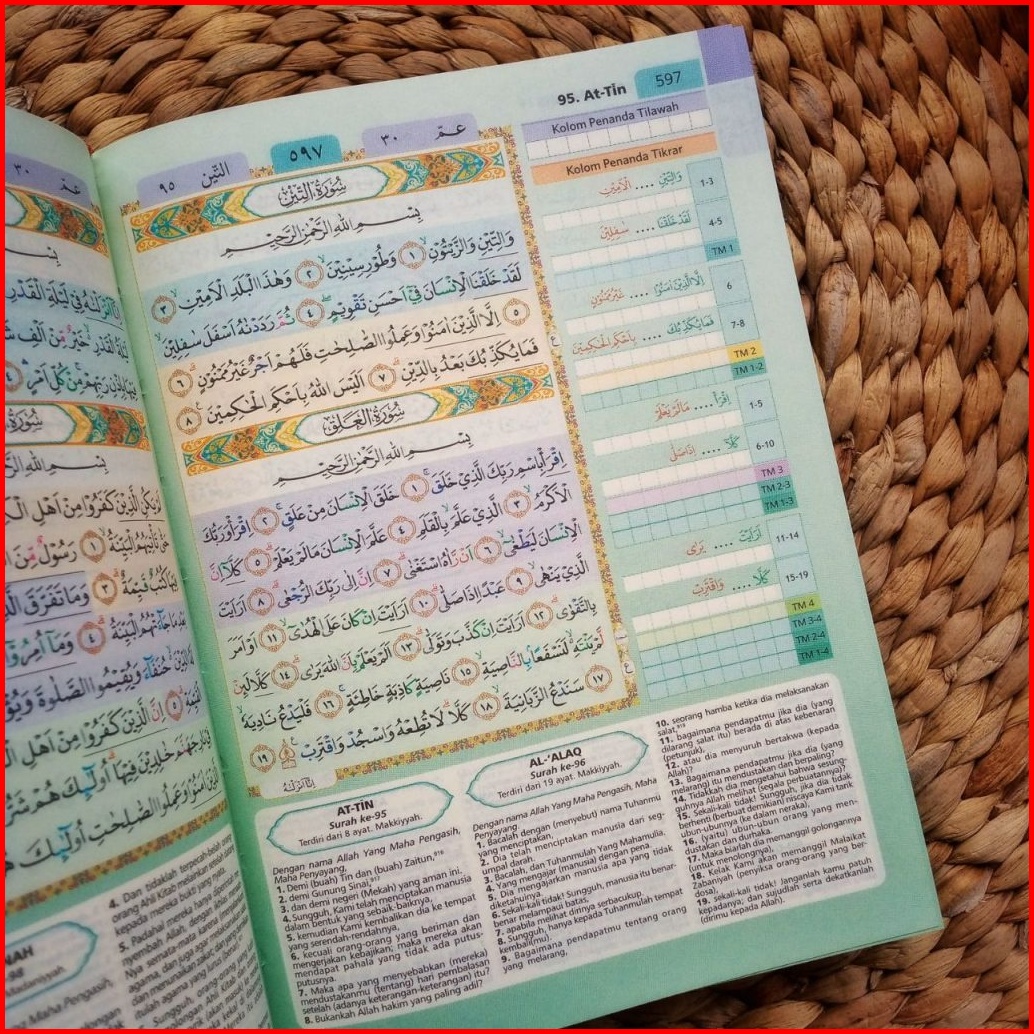 95. At-Tîn
597
Kolom Penanda Tilawah
Kolom Penanda Tikrar
التين ٩٥
٥٩٧
عمّ ٣٠
سُوْرَةُ التِّيْنِ
بِسْمِ اللّٰهِ الرَّحْمٰنِ الرَّحِيْمِ
وَالتِّيْنِ وَالزَّيْتُوْنِۙ ١ وَطُوْرِ سِيْنِيْنَۙ ٢ وَهٰذَا الْبَلَدِ الْاَمِيْنِۙ ٣
لَقَدْ خَلَقْنَا الْاِنْسَانَ فِيْٓ اَحْسَنِ تَقْوِيْمٍۖ ٤ ثُمَّ رَدَدْنٰهُ اَسْفَلَ سٰفِلِيْنَۙ
٥ اِلَّا الَّذِيْنَ اٰمَنُوْا وَعَمِلُوا الصّٰلِحٰتِ فَلَهُمْ اَجْرٌ غَيْرُ مَمْنُوْنٍۗ ٦
فَمَا يُكَذِّبُكَ بَعْدُ بِالدِّيْنِۗ ٧ اَلَيْسَ اللّٰهُ بِاَحْكَمِ الْحٰكِمِيْنَ ٨
سُوْرَةُ الْعَلَقِ
بِسْمِ اللّٰهِ الرَّحْمٰنِ الرَّحِيْمِ
اِقْرَأْ بِاسْمِ رَبِّكَ الَّذِيْ خَلَقَۚ ١ خَلَقَ الْاِنْسَانَ مِنْ عَلَقٍۚ ٢ اِقْرَأْ وَرَبُّكَ
الْاَكْرَمُۙ ٣ الَّذِيْ عَلَّمَ بِالْقَلَمِۙ ٤ عَلَّمَ الْاِنْسَانَ مَا لَمْ يَعْلَمْۗ ٥ كَلَّآ اِنَّ
الْاِنْسَانَ لَيَطْغٰىٓۙ ٦ اَنْ رَّاٰهُ اسْتَغْنٰىۗ ٧ اِنَّ اِلٰى رَبِّكَ الرُّجْعٰىۗ ٨ اَرَاَيْتَ
الَّذِيْ يَنْهٰىۙ ٩ عَبْدًا اِذَا صَلّٰىۗ ١٠ اَرَاَيْتَ اِنْ كَانَ عَلَى الْهُدٰىٓۙ ١١ اَوْ اَمَرَ
بِالتَّقْوٰىۗ ١٢ اَرَاَيْتَ اِنْ كَذَّبَ وَتَوَلّٰىۗ ١٣ اَلَمْ يَعْلَمْ بِاَنَّ اللّٰهَ يَرٰىۗ ١٤ كَلَّا لَىِٕنْ
لَّمْ يَنْتَهِ ەۙ لَنَسْفَعًاۢ بِالنَّاصِيَةِۙ ١٥ نَاصِيَةٍ كَاذِبَةٍ خَاطِئَةٍۚ ١٦ فَلْيَدْعُ نَادِيَهٗۙ
١٧ سَنَدْعُ الزَّبَانِيَةَۙ ١٨ كَلَّاۗ لَا تُطِعْهُ وَاسْجُدْ وَاقْتَرِبْ ۩ ١٩
1-3 وَالتِّيْنِ .... الْاَمِيْنِ
4-5 لَقَدْ خَلَقْنَا .... سٰفِلِيْنَ
TM 1
6 اِلَّا الَّذِيْنَ اٰمَنُوْا .... غَيْرُ مَمْنُوْنٍ
7-8 فَمَا يُكَذِّبُكَ .... بِاَحْكَمِ الْحٰكِمِيْنَ
TM 2
TM 1-2
1-5 اِقْرَأْ .... مَا لَمْ يَعْلَمْ
6-10 كَلَّآ .... اِذَا صَلّٰى
TM 3
TM 2-3
TM 1-3
11-14 اَرَاَيْتَ .... يَرٰى
15-19 كَلَّا .... وَاقْتَرِبْ
TM 4
TM 3-4
TM 2-4
TM 1-4
AT-TÎN
Surah ke-95
Terdiri dari 8 ayat. Makkiyyah.
Dengan nama Allah Yang Maha Pengasih,
Maha Penyayang.
1. Demi (buah) Tin dan (buah) Zaitun,⁹¹⁶
2. demi Gunung Sinai,⁹¹⁷
3. dan demi negeri (Mekah) yang aman ini.
4. Sungguh, Kami telah menciptakan manusia
dalam bentuk yang sebaik-baiknya,
5. kemudian Kami kembalikan dia ke tempat
yang serendah-rendahnya,
6. kecuali orang-orang yang beriman dan
mengerjakan kebajikan; maka mereka akan
mendapat pahala yang tidak ada putus-
putusnya.
7. Maka apa yang menyebabkan (mereka)
mendustakanmu (tentang) hari pembalasan
setelah (adanya keterangan-keterangan) itu?
8. Bukankah Allah hakim yang paling adil?
AL-'ALAQ
Surah ke-96
Terdiri dari 19 ayat. Makkiyyah.
Dengan nama Allah Yang Maha Pengasih, Maha
Penyayang.
1. Bacalah dengan (menyebut) nama Tuhanmu
yang menciptakan,
2. Dia telah menciptakan manusia dari seg-
umpal darah.
3. Bacalah, dan Tuhanmulah Yang Mahamulia,
4. Yang mengajar (manusia) dengan pena.
5. Dia mengajarkan manusia apa yang tidak
diketahuinya.
6. Sekali-kali tidak! Sungguh, manusia itu benar-
benar melampaui batas,
7. apabila melihat dirinya serbacukup.
8. Sungguh, hanya kepada Tuhanmulah tempat
kembali(mu).
9. Bagaimana pendapatmu tentang orang
yang melarang,
10. seorang hamba ketika dia melaksanakan
salat,⁹¹⁹
11. bagaimana pendapatmu jika dia (yang
dilarang salat itu) berada di atas kebenaran
(petunjuk),
12. atau dia menyuruh bertakwa (kepada
Allah)?
13. Bagaimana pendapatmu jika dia (yang
melarang) itu mendustakan dan berpaling?
14. Tidakkah dia mengetahui bahwa sesung-
guhnya Allah melihat (segala perbuatannya)?
15. Sekali-kali tidak! Sungguh, jika dia tidak
berhenti (berbuat demikian) niscaya Kami tarik
ubun-ubunnya (ke dalam neraka),
16. (yaitu) ubun-ubun orang yang men-
dustakan dan durhaka.
17. Maka biarlah dia memanggil golongannya
(untuk menolongnya),
18. Kelak Kami akan memanggil Malaikat
Zabaniyah (penyiksa orang-orang yang ber-
dosa),
19. sekali-kali tidak! Janganlah kamu patuh
kepadanya; dan sujudlah serta dekatkanlah
(dirimu kepada Allah).